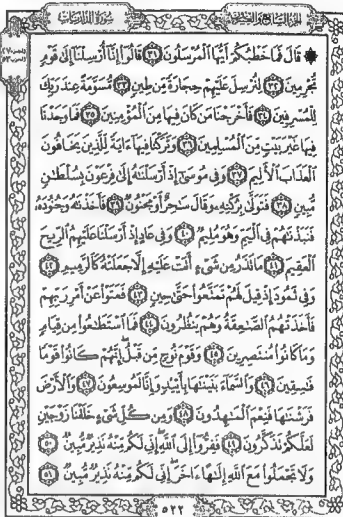 الجزء السابع والعشرون سورة الذاريات
۞ قَالَ فَمَا خَطْبُكُمْ أَيُّهَا ٱلْمُرْسَلُونَ ٣١ قَالُوٓا۟ إِنَّآ أُرْسِلْنَآ إِلَىٰ قَوْمٍ
مُّجْرِمِينَ ٣٢ لِنُرْسِلَ عَلَيْهِمْ حِجَارَةً مِّن طِينٍ ٣٣ مُّسَوَّمَةً عِندَ رَبِّكَ
لِلْمُسْرِفِينَ ٣٤ فَأَخْرَجْنَا مَن كَانَ فِيهَا مِنَ ٱلْمُؤْمِنِينَ ٣٥ فَمَا وَجَدْنَا
فِيهَا غَيْرَ بَيْتٍ مِّنَ ٱلْمُسْلِمِينَ ٣٦ وَتَرَكْنَا فِيهَآ ءَايَةً لِّلَّذِينَ يَخَافُونَ
ٱلْعَذَابَ ٱلْأَلِيمَ ٣٧ وَفِى مُوسَىٰٓ إِذْ أَرْسَلْنَٰهُ إِلَىٰ فِرْعَوْنَ بِسُلْطَٰنٍ
مُّبِينٍ ٣٨ فَتَوَلَّىٰ بِرُكْنِهِۦ وَقَالَ سَٰحِرٌ أَوْ مَجْنُونٌ ٣٩ فَأَخَذْنَٰهُ وَجُنُودَهُۥ
فَنَبَذْنَٰهُمْ فِى ٱلْيَمِّ وَهُوَ مُلِيمٌ ٤٠ وَفِى عَادٍ إِذْ أَرْسَلْنَا عَلَيْهِمُ ٱلرِّيحَ
ٱلْعَقِيمَ ٤١ مَا تَذَرُ مِن شَىْءٍ أَتَتْ عَلَيْهِ إِلَّا جَعَلَتْهُ كَٱلرَّمِيمِ ٤٢
وَفِى ثَمُودَ إِذْ قِيلَ لَهُمْ تَمَتَّعُوا۟ حَتَّىٰ حِينٍ ٤٣ فَعَتَوْا۟ عَنْ أَمْرِ رَبِّهِمْ
فَأَخَذَتْهُمُ ٱلصَّٰعِقَةُ وَهُمْ يَنظُرُونَ ٤٤ فَمَا ٱسْتَطَٰعُوا۟ مِن قِيَامٍ
وَمَا كَانُوا۟ مُنتَصِرِينَ ٤٥ وَقَوْمَ نُوحٍ مِّن قَبْلُ إِنَّهُمْ كَانُوا۟ قَوْمًا
فَٰسِقِينَ ٤٦ وَٱلسَّمَآءَ بَنَيْنَٰهَا بِأَيْي۟دٍ وَإِنَّا لَمُوسِعُونَ ٤٧ وَٱلْأَرْضَ
فَرَشْنَٰهَا فَنِعْمَ ٱلْمَٰهِدُونَ ٤٨ وَمِن كُلِّ شَىْءٍ خَلَقْنَا زَوْجَيْنِ
لَعَلَّكُمْ تَذَكَّرُونَ ٤٩ فَفِرُّوٓا۟ إِلَى ٱللَّهِ إِنِّى لَكُم مِّنْهُ نَذِيرٌ مُّبِينٌ ٥٠
وَلَا تَجْعَلُوا۟ مَعَ ٱللَّهِ إِلَٰهًا ءَاخَرَ إِنِّى لَكُم مِّنْهُ نَذِيرٌ مُّبِينٌ ٥١
٥٢٢